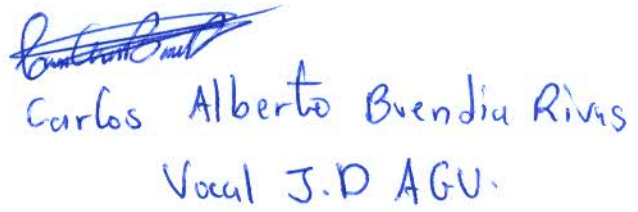 Carlos Alberto Buendia Rivas
Vocal J.D AGU.